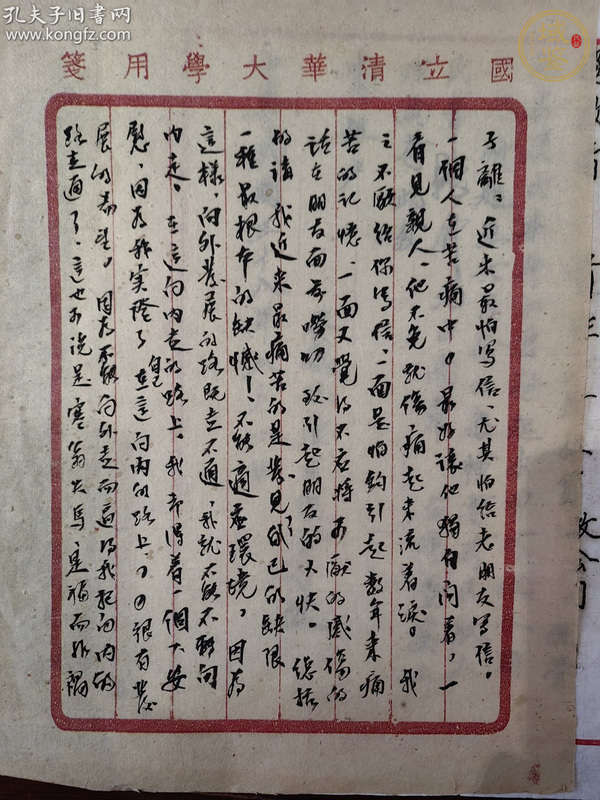 孔夫子旧书网
www.kongfz.com
國立清華大學用箋
子離：近来最怕写信，尤其怕给老朋友写信。
一個人在苦痛中，最好讓他獨自闷着，一
看見親人，他不免就傷痛起来流着淚。我
之不願给你写信，一面是怕鈎引起数年来痛
苦的記憶，一面又覺得不应将可厭的感傷的
話在朋友面前嘮叨，致引起朋友的不快。總括
的講，我近来最痛苦的是發見了自己的缺限
一種最根本的缺憾！不能適应環境，因為
這樣，向外發展的路既走不通，我就不能不轉向
内走。在這向内走的路上，我卻得着一個大安
慰，因為我實證了自己在這向内的路上，很有發
展的希望。因為不能向外走而逼得我把向内的
路走通了，這也可說是塞翁失馬，是福而非禍